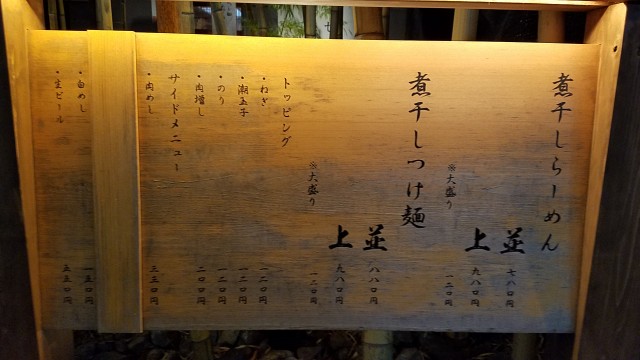 煮干しらーめん
並 七八〇円
上 九八〇円
※大盛り 一二〇円
煮干しつけ麺
並 八八〇円
上 九八〇円
※大盛り 一二〇円
トッピング
・ねぎ 一二〇円
・潮玉子 一二〇円
・のり 一二〇円
・肉増し 二〇〇円
サイドメニュー
・肉めし 三五〇円
・白めし 一五〇円
・生ビール 五五〇円